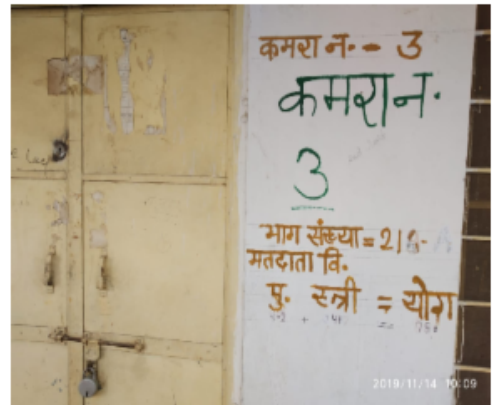 कमरा न. - 3
कमरा न.
3
भाग संख्या = 218
मतदाता वि.
पु. स्त्री = योग
2019/11/14 10:09